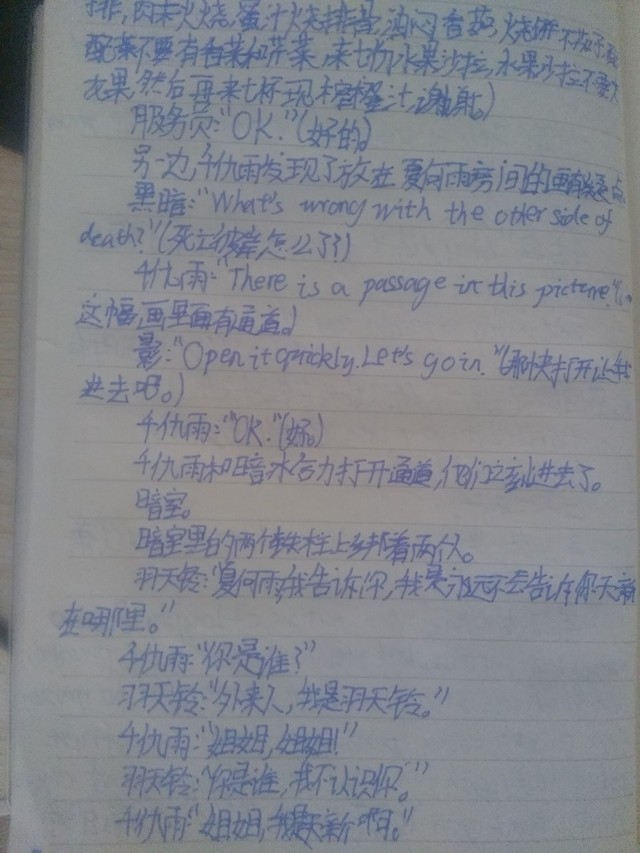 排,肉末火烧,蜜汁烧排骨,油闷香菇,烧饼不放
配菜不要有香菜和芹菜,来七份水果沙拉,水果沙拉不要
然后再来七杯现榨橙汁,谢谢。)
服务员:“OK.”(好的。)
另一边,千仇雨发现了放在夏何雨房间的画有疑点。
黑暗:“What's wrong with the other side of
death?”(死亡彼岸怎么了?)
千仇雨:“There is a passage in this picture.”(
这幅画里面有通道。)
影:“Open it quickly. Let's go in.”(那快打开让我
进去吧。)
千仇雨:“OK.”(好。)
千仇雨和暗冰合力打开通道,他们立刻进去了。
暗室。
暗室里的两个铁柱上绑着两个人。
羽天铃:“夏何雨,我告诉你,我是永远不会告诉你天新
在哪里。”
千仇雨:“你是谁?”
羽天铃:“外来人,我是羽天铃。”
千仇雨:“姐姐,姐姐!”
羽天铃:“你是谁,我不认识你。”
千仇雨:“姐姐,我是天新啊。”